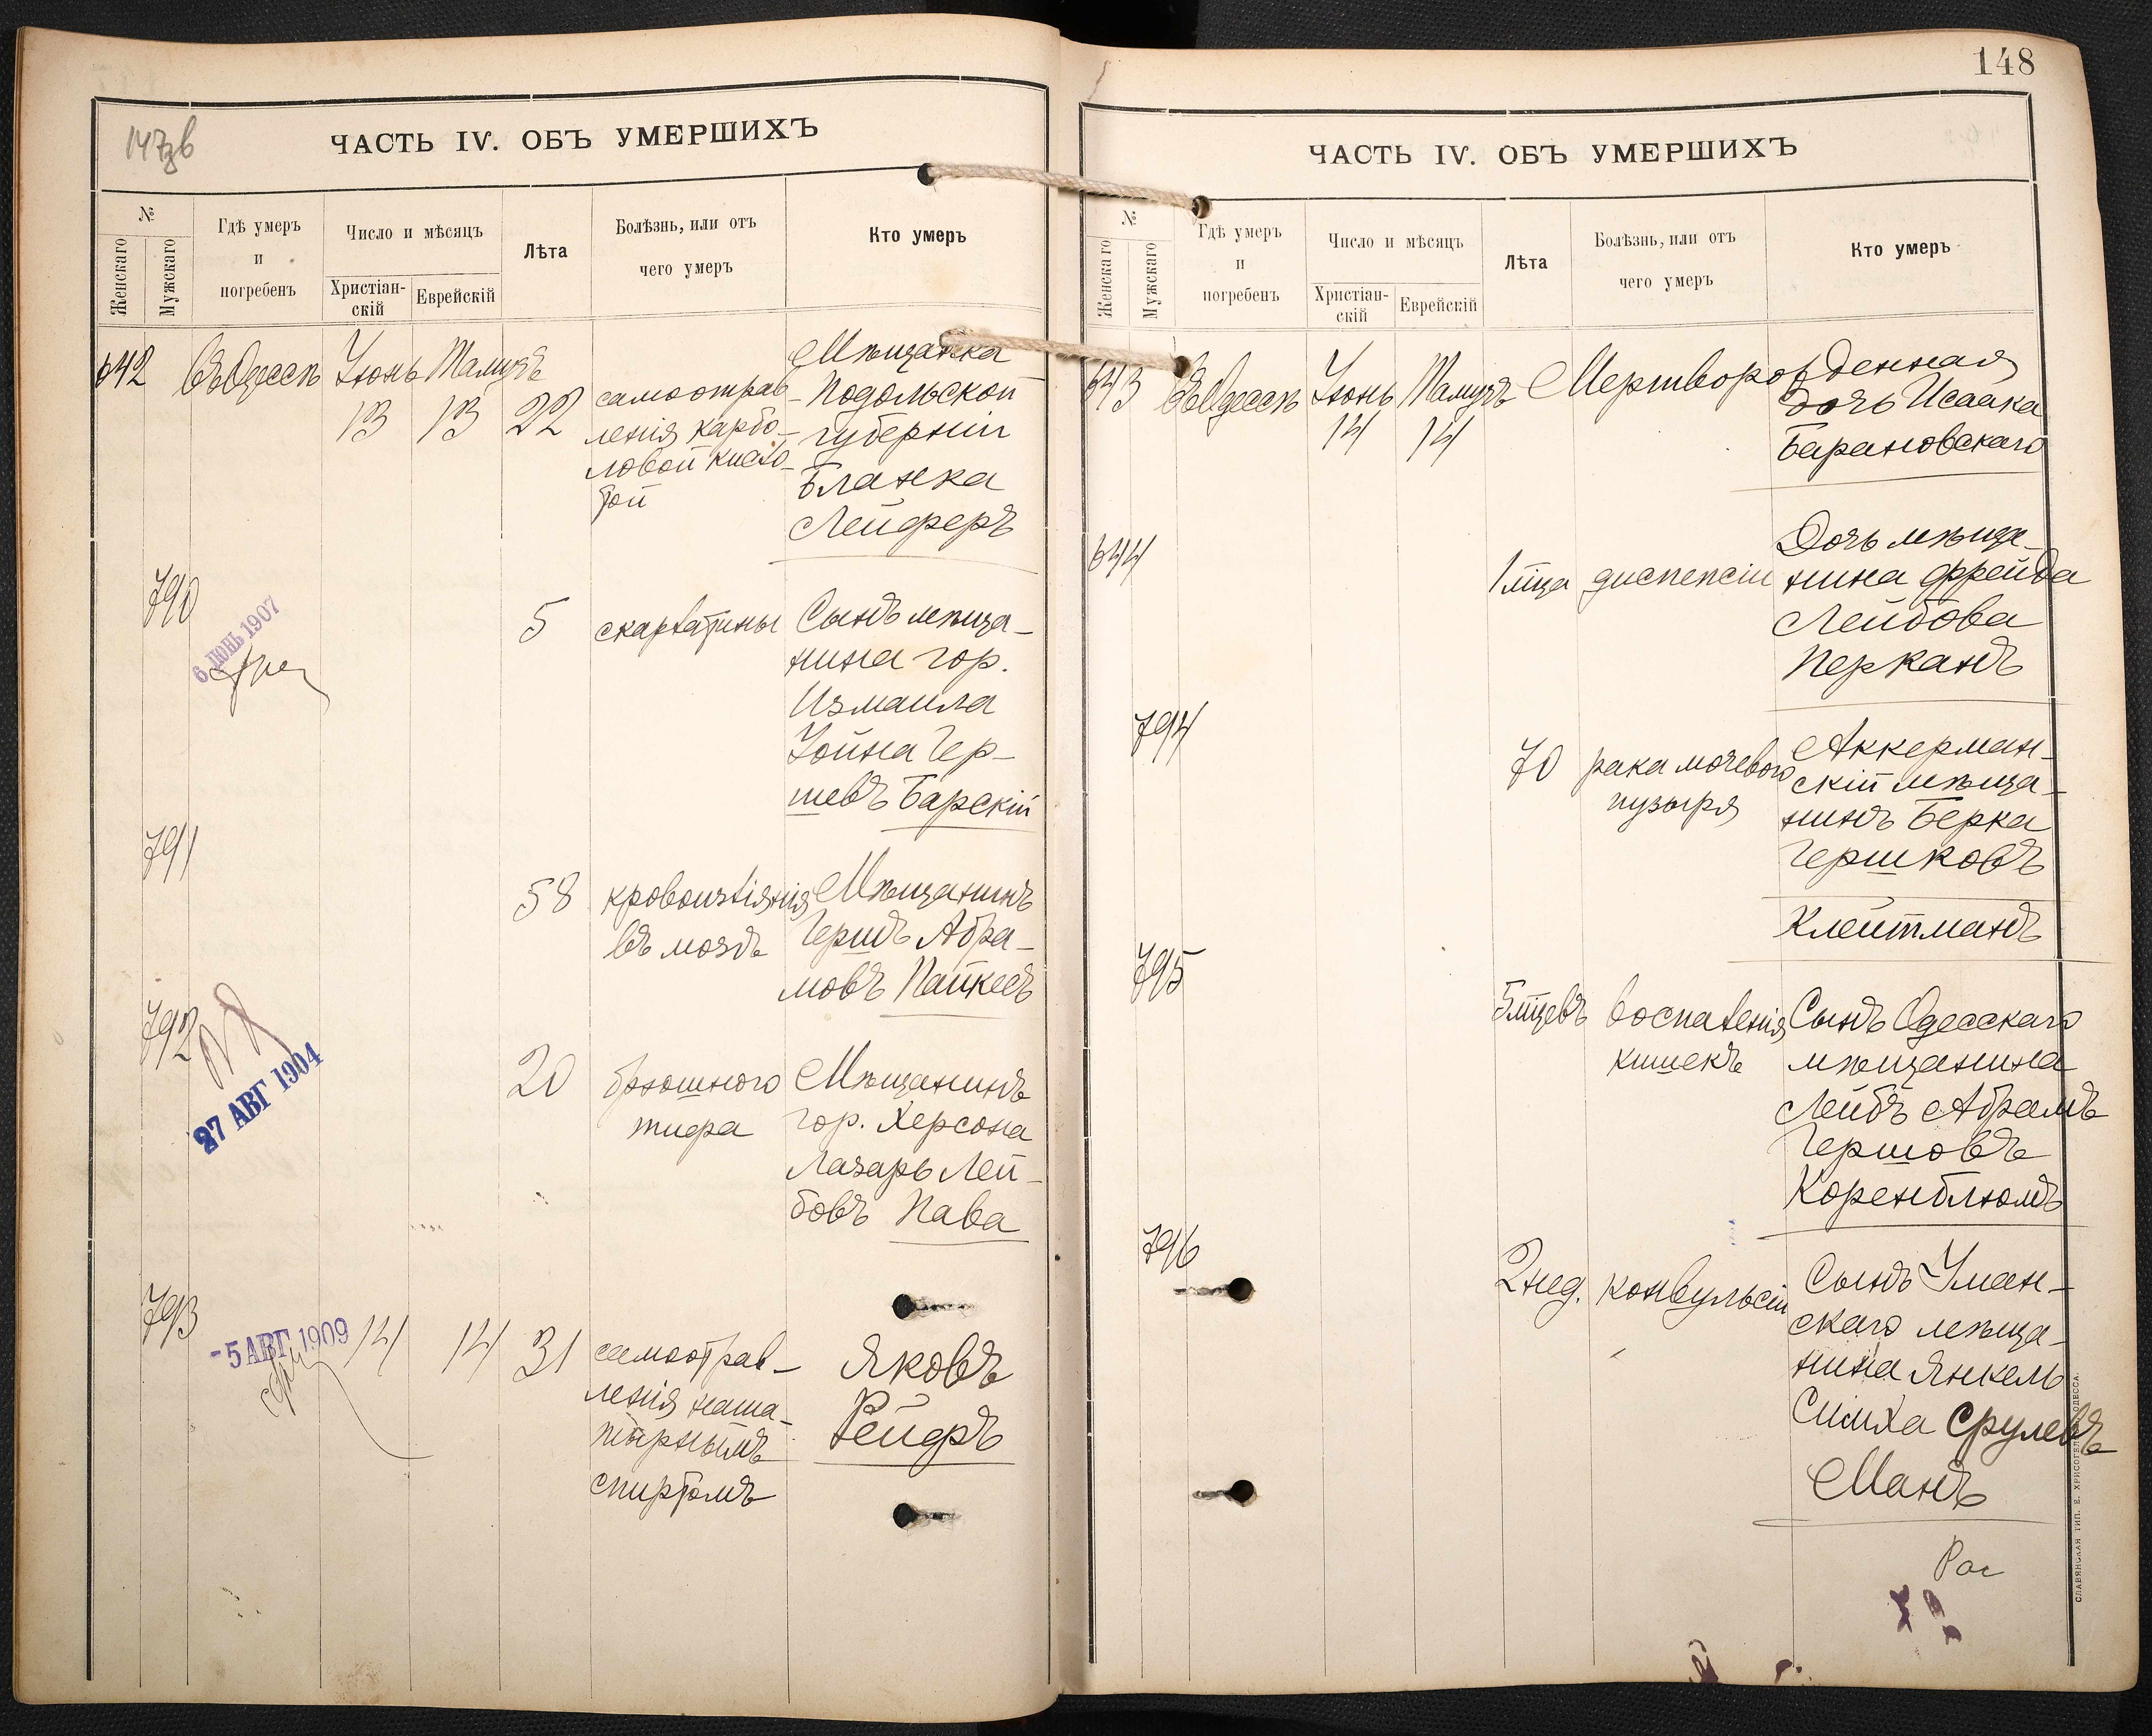 147зв
ЧАСТЬ IV. ОБЪ УМЕРШИХЪ
№
Женскаго
Мужскаго
Гдѣ умеръ
и
погребенъ
Число и мѣсяцъ
Христіан-
скій
Еврейскій
Лѣта
Болѣзнь, или отъ
чего умеръ
Кто умеръ
642 Въ Одессѣ Іюнь Тамузъ
13 13 22
самоотрав-
ленія карбо-
ловой кисло-
той
Мѣщанка
Подольской
губерніи
Бланка
Лейферъ
790
6 ІЮНЬ 1907
5 скарлатины
Сынъ мѣща-
нина гор.
Измаила
Іойна Гер-
шевъ Барскій
791
58 кровоизліянія
въ мозгъ
Мѣщанинъ
Гершъ Абра-
мовъ Пайкесъ
792
27 АВГ 1904
20 брюшного
тифа
Мѣщанинъ
гор. Херсона
Лазарь Лей-
бовъ Пава
793
-5 АВГ. 1909
14 14 31
самоотрав-
ленія наша-
тырнымъ
спиртомъ
Яковъ
Рейфъ
148
ЧАСТЬ IV. ОБЪ УМЕРШИХЪ
№
Женскаго
Мужскаго
Гдѣ умеръ
и
погребенъ
Число и мѣсяцъ
Христіан-
скій
Еврейскій
Лѣта
Болѣзнь, или отъ
чего умеръ
Кто умеръ
643 Въ Одессѣ Іюнь Тамузъ
14 14
Мертворожденная
дочь Исаака
Барановскаго
644
1 мѣца диспепсіи
Дочь мѣща-
нина Фрейда
Лейбова
Перканъ
794
70 рака мочевого
пузыря
Аккерман-
скій мѣща-
нинъ Берка
Гершковъ
Клейтманъ
795
5 мцевъ воспаленія
кишекъ
Сынъ Одесскаго
мѣщанина
Лейбъ Абрамъ
Гершовъ
Коренблюмъ
796
2 нед. конвульсіи
Сынъ Уман-
скаго мѣща-
нина Янкель
Симха Срулевъ
Манъ
СЛАВЯНСКАЯ ТИП. Е. ХРИСОГЕЛОСЪ ОДЕССА.